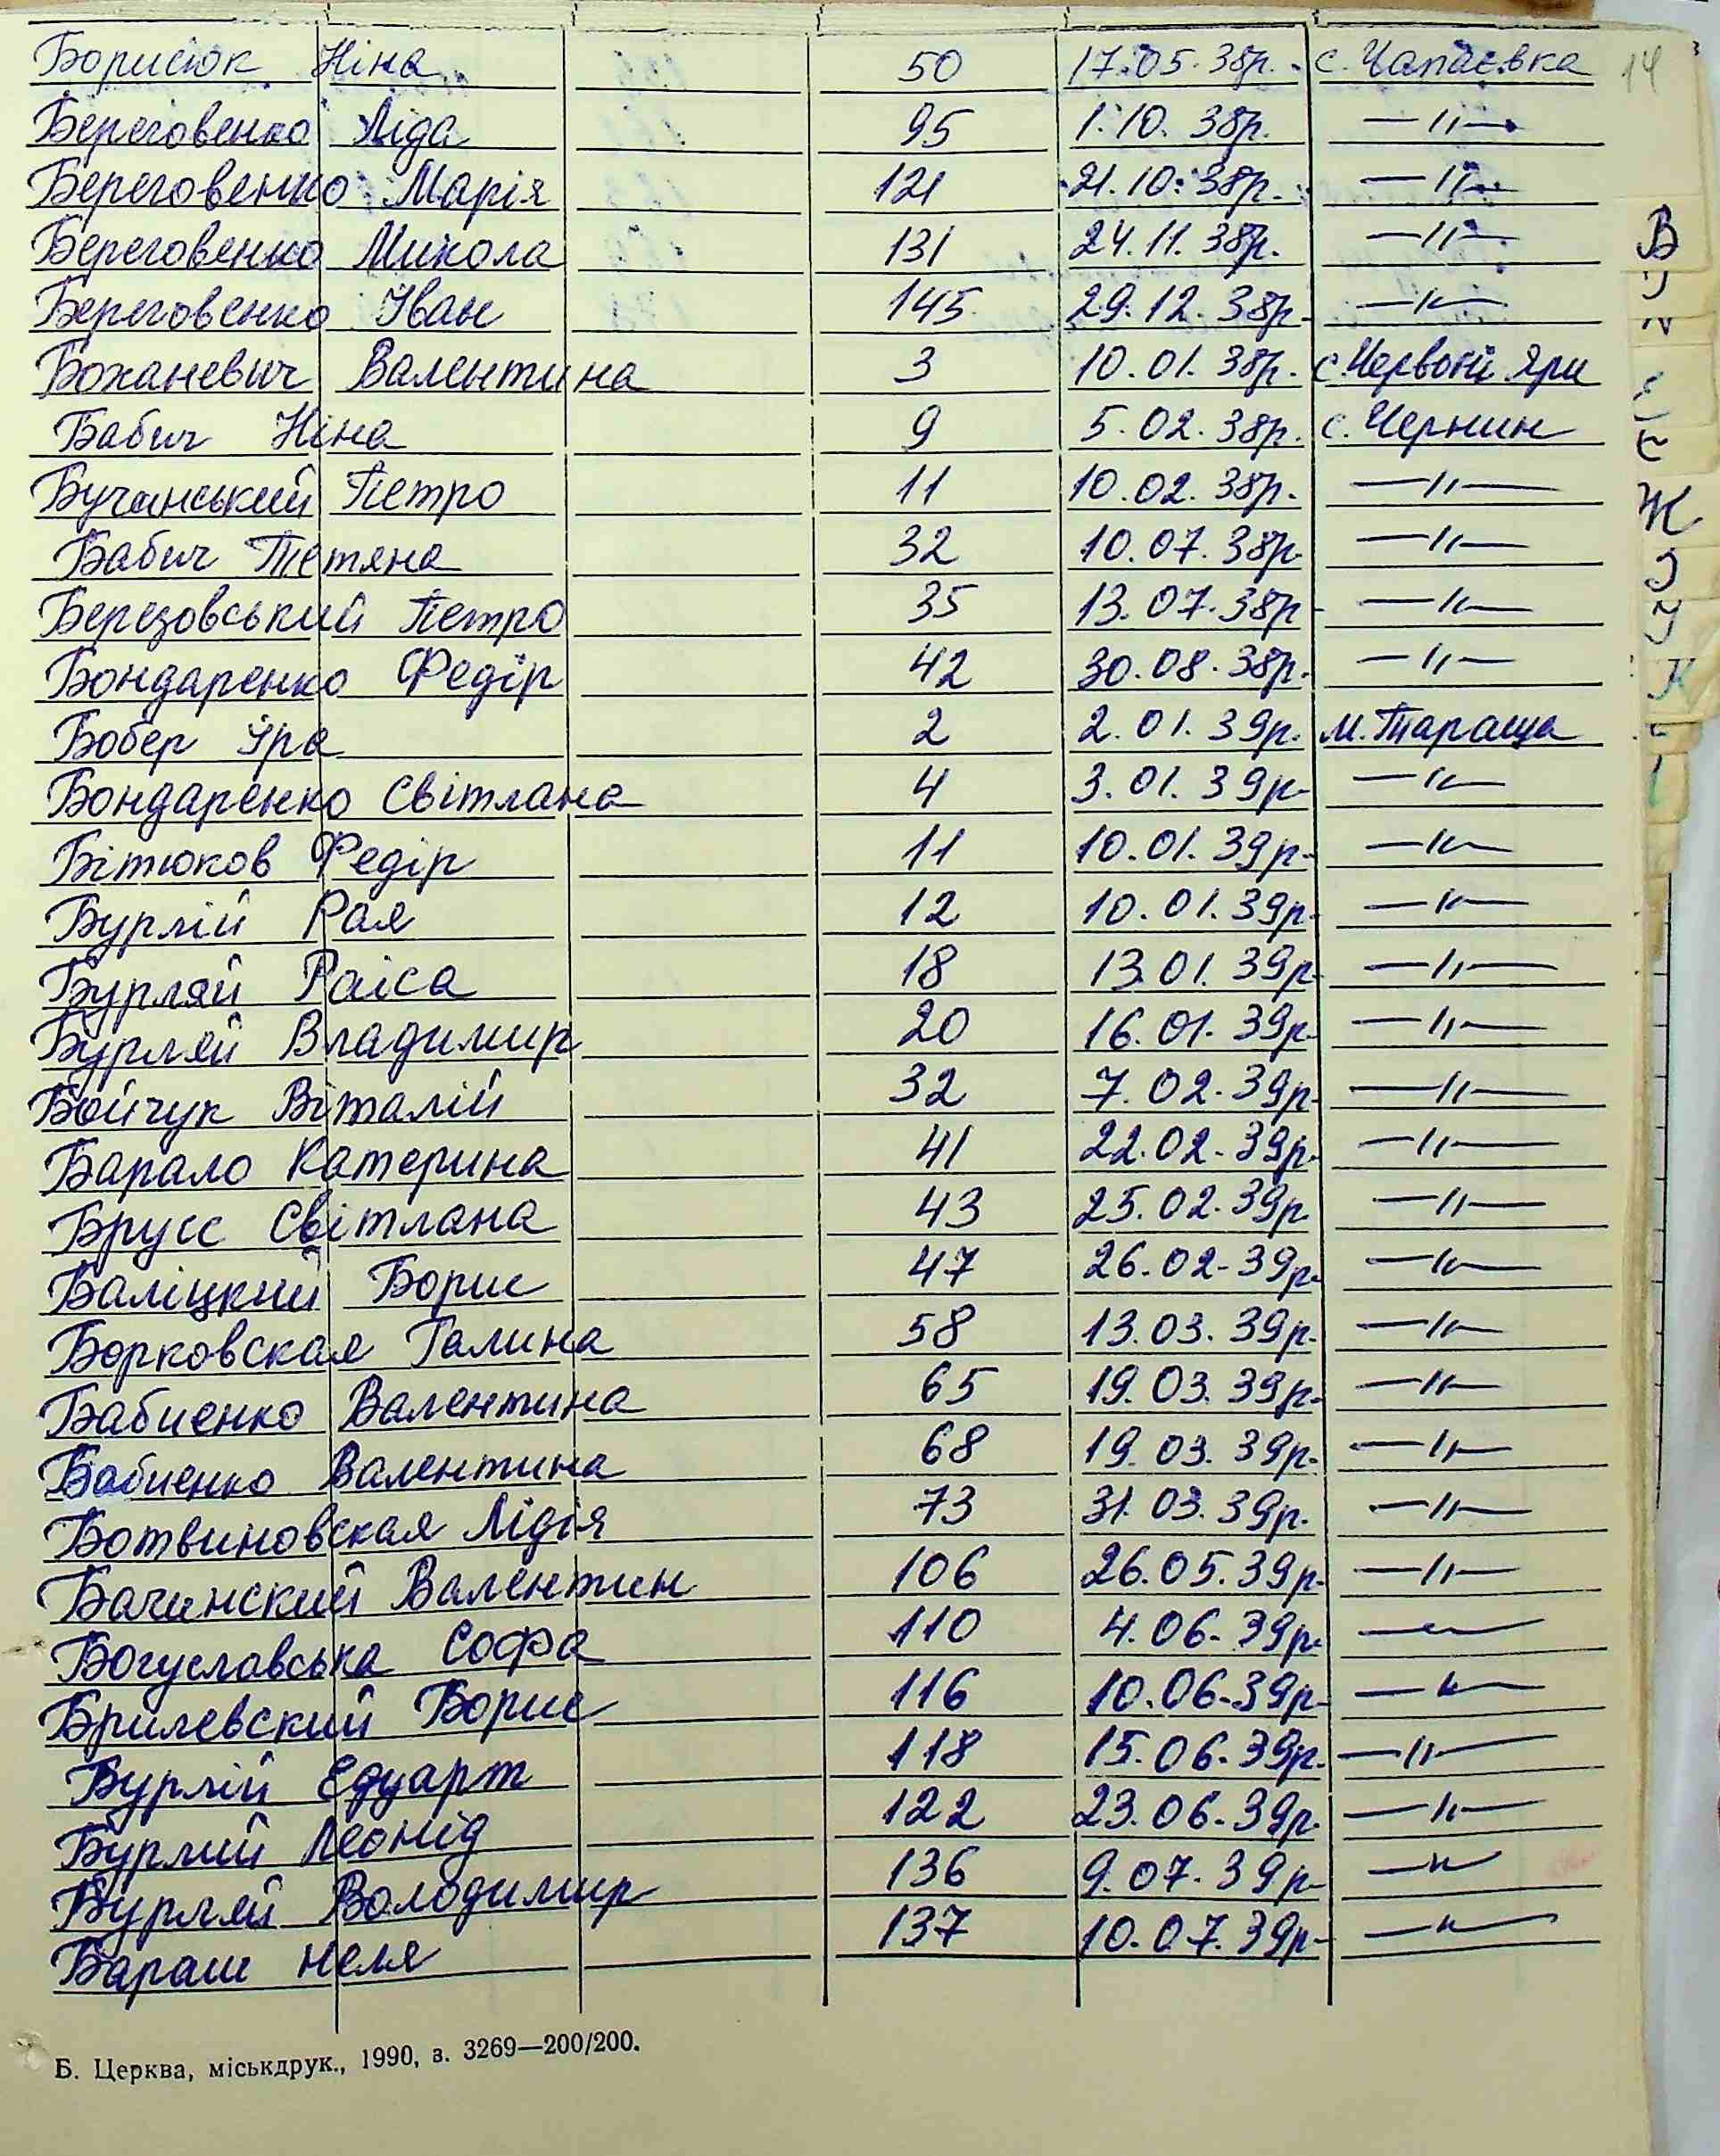 Борисюк Ніна 50 17.05.38р. с. Чапаєвка 14
Береговенко Ліда 95 1.10.38р. —〃—
Береговенко Марія 121 21.10.38р. —〃—
Береговенко Микола 131 24.11.38р. —〃—
Береговенко Іван 145 29.12.38р. —〃—
Божаневич Валентина 3 10.01.38р. с. Червоні Яри
Бабич Ніна 9 5.02.38р. с. Чернин
Бучанський Петро 11 10.02.38р. —〃—
Бабич Тетяна 32 10.07.38р. —〃—
Березовський Петро 35 13.07.38р —〃—
Бондаренко Федір 42 30.08.38р. —〃—
Бобер Іра 2 2.01.39р. м. Тараща
Бондаренко Світлана 4 3.01.39р. —〃—
Бітюков Федір 11 10.01.39р. —〃—
Бурлій Рая 12 10.01.39р. —〃—
Бурляй Раіса 18 13.01.39р. —〃—
Бурляй Владимир 20 16.01.39р. —〃—
Бойчук Віталій 32 7.02.39р. —〃—
Барало Катерина 41 22.02.39р. —〃—
Брусс Світлана 43 25.02.39р. —〃—
Баліцкий Борис 47 26.02.39р. —〃—
Борковская Галина 58 13.03.39р. —〃—
Бабиенко Валентина 65 19.03.39р. —〃—
Бабиенко Валентина 68 19.03.39р. —〃—
Ботвиновская Лідія 73 31.03.39р. —〃—
Бачинский Валентин 106 26.05.39р. —〃—
Богуславська Софа 110 4.06.39р. —〃—
Брилевский Борис 116 10.06.39р. —〃—
Бурлій Едуарт 118 15.06.39р. —〃—
Бурлий Леонід 122 23.06.39р. —〃—
Бурляй Володимир 136 9.07.39р. —〃—
Бараш Неля 137 10.07.39р. —〃—
Б. Церква, міськдрук., 1990, з. 3269—200/200.
В
Ж
З
К